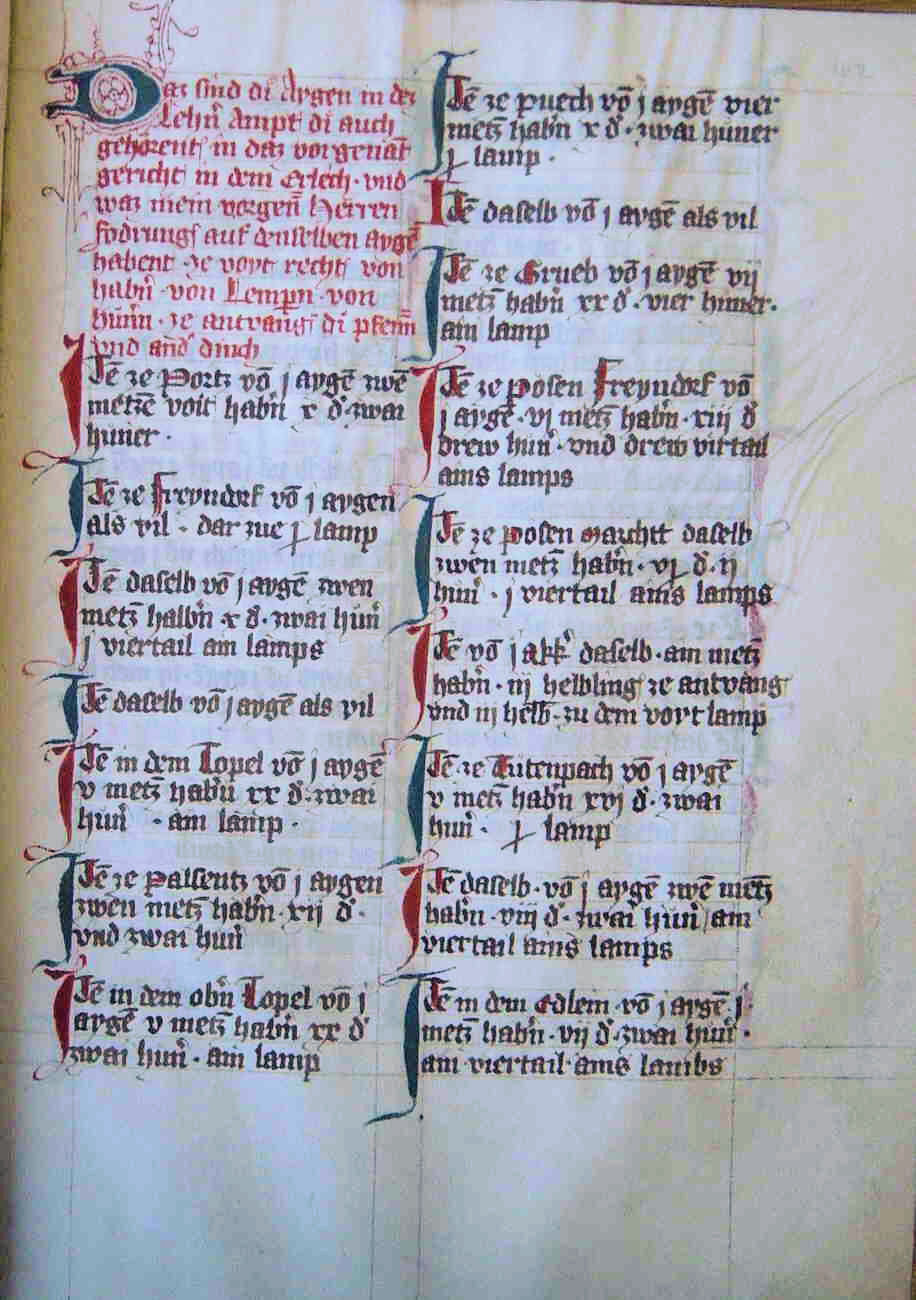 Daz sind di Aygen in dez
Lehn̄ Ampt di auch
gehorent in daz vorgenāt
gericht in dem Erlech · vnd
waz mein vorgen̄ Herren
fodrung auf denselben aygē
habent ze voyt recht von
habn̄ · von Lempn̄ · von
Hun̄n · ze antvang di pfenn̄
vnd and̄ dinch
Itē ze Portz vō j aygē zwē
metzē voit habn̄ x d · zwai
huner ·
Itē ze Freyndorf vō j aygen
als vil · dar zue j lamp
Itē daselb vō j aygē zwen
metz̄ habn̄ x d · zwai hun̄
j viertail ain lamps
Itē daselb vō j aygē als vil
Itē in dem Topel vō j aygē
v metz̄ habn̄ xx d · zwai
hun̄ · ain lamp ·
Itē ze Palsentz vō j aygen
zwen metz̄ habn̄ · xij d ·
vnd zwai hun̄
Itē in dem obn̄ Topel vō j
aygē v metz̄ habn̄ xx d
zwai hun̄ · ain lamp
Itē ze puech vō j aygē vier
metz̄ habn̄ x d · zwai huner
j lamp ·
Itē daselb vō j aygē als vil
Itē ze Grueb vō j aygē vij
metz̄ habn̄ xx d · vier huner ·
ain lamp
Itē ze posen Freyndorf vō
j aygē · vj metz̄ habn̄ · xiij d
drew hun̄ · vnd drew virtail
ains lamps
Itē ze posen daselb
zwen metz̄ habn̄ · vj d · ij
hun̄ · j viertail ains lamps
Itē vō j akk̄ daselb · ain metz̄
habn̄ · iij helbling ze antvang
vnd iij helb̄ · zu dem voyt lamp
Itē ze Tutenpach vō j aygē
v metz̄ habn̄ xvj d · zwai
hun̄ · j lamp
Itē daselb · vō j aygē zwē metz̄
habn̄ · viij d · zwai hun̄ / ain
viertail ains lamps
Itē in dem Edlein · vō j aygē · j ·
metz̄ habn̄ · vij d · zwai hun̄ ·
ain viertail ains lambs